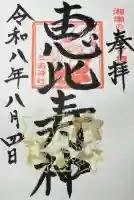 奉拝
湘南の
恵比寿神
令和八年八月四日